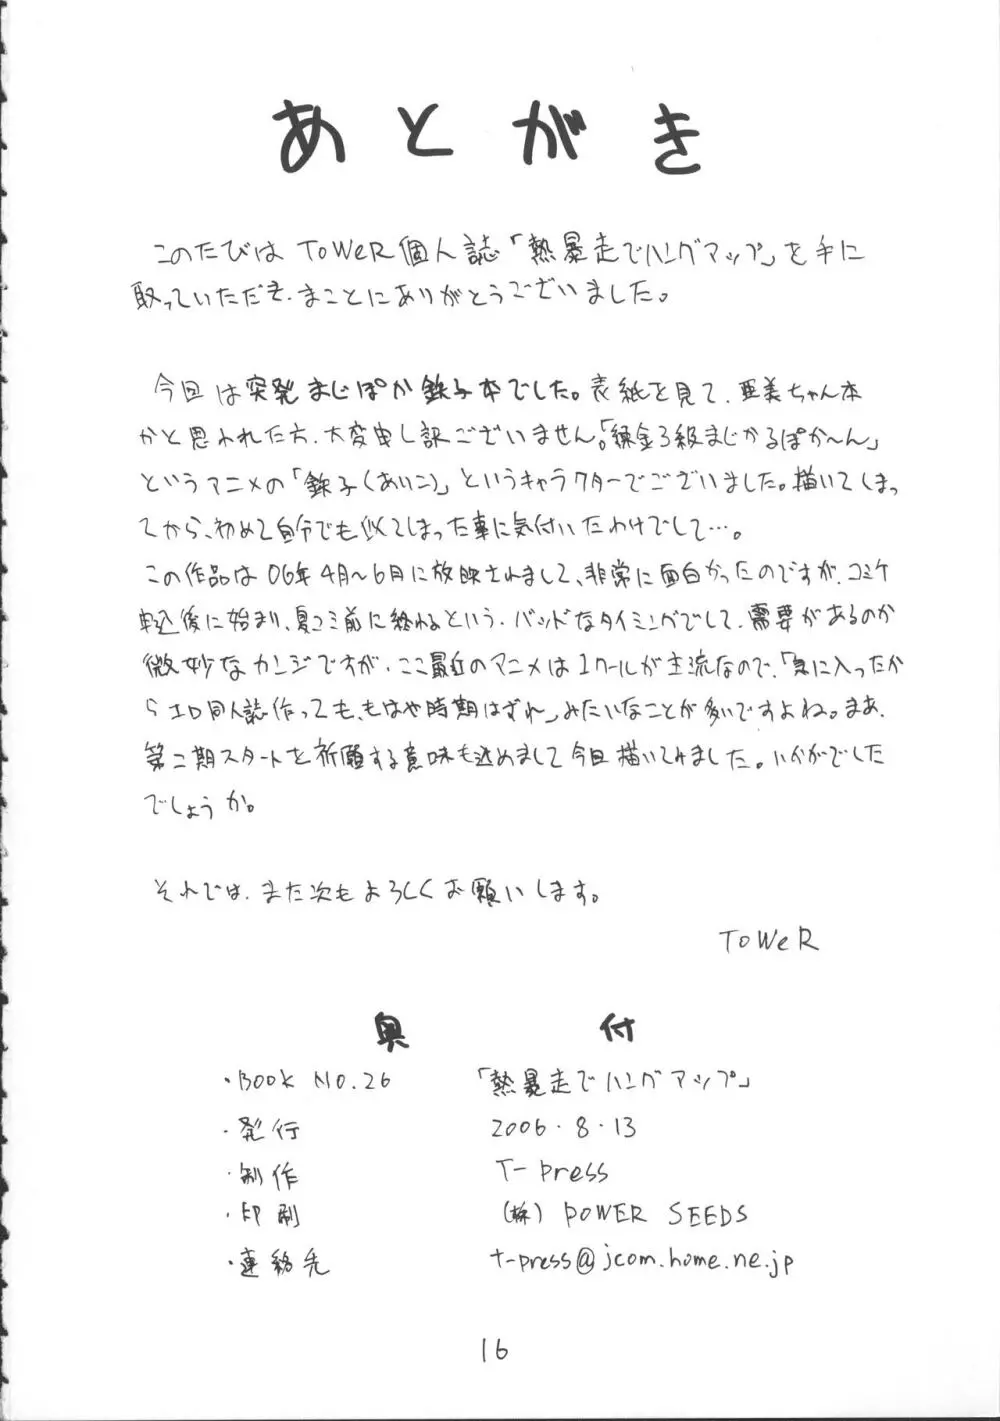 あとがき
このたびは ToWeR個人誌「熱暴走でハングアップ」を手に
取っていただき、まことにありがとうございました。
今回は突発まじぽか鉄子本でした。表紙を見て、亜美ちゃん本
かと思われた方、大変申し訳ございません。「錬金3級まじかるぽか〜ん」
というアニメの「鉄子(あいこ)」というキャラクターでございました。描いてしまっ
てから、初めて自分でも似てしまった事に気付いたわけでして…。
この作品は06年4月〜6月に放映されまして、非常に面白かったのですが、コミケ
申込後に始まり、夏コミ前に終わるという、バッドなタイミングでして、需要があるのか
微妙なカンジですが、ここ最近のアニメは1クールが主流なので、「気に入ったか
らエロ同人誌作っても、もはや時期はずれ」みたいなことが多いですよね。まあ、
第二期スタートを祈願する意味も込めまして今回描いてみました。いかがでした
でしょうか。
それでは、また次もよろしくお願いします。
ToWeR
奥付
・BOOK NO.26 「熱暴走でハングアップ」
・発行 2006・8・13
・制作 T-press
・印刷 (株) POWER SEEDS
・連絡先 t-press@jcom.home.ne.jp
16